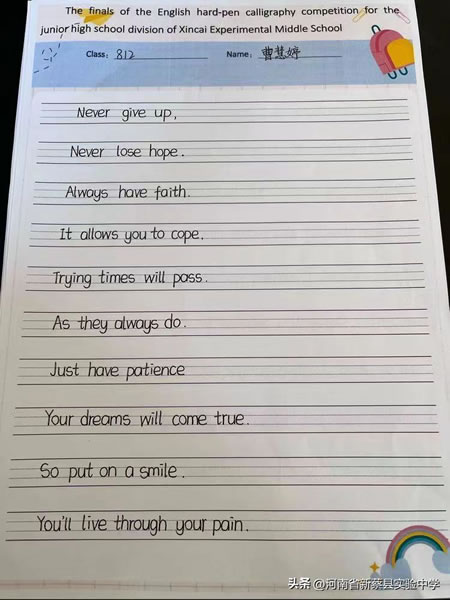 The finals of the English hard-pen calligraphy competition for the
junior high school division of Xincai Experimental Middle School
Class: 812 Name: 曹慧婷
Never give up,
Never lose hope.
Always have faith.
It allows you to cope.
Trying times will pass.
As they always do.
Just have patience
Your dreams will come true.
So put on a smile.
You'll live through your pain.
头条 @河南省新蔡县实验中学